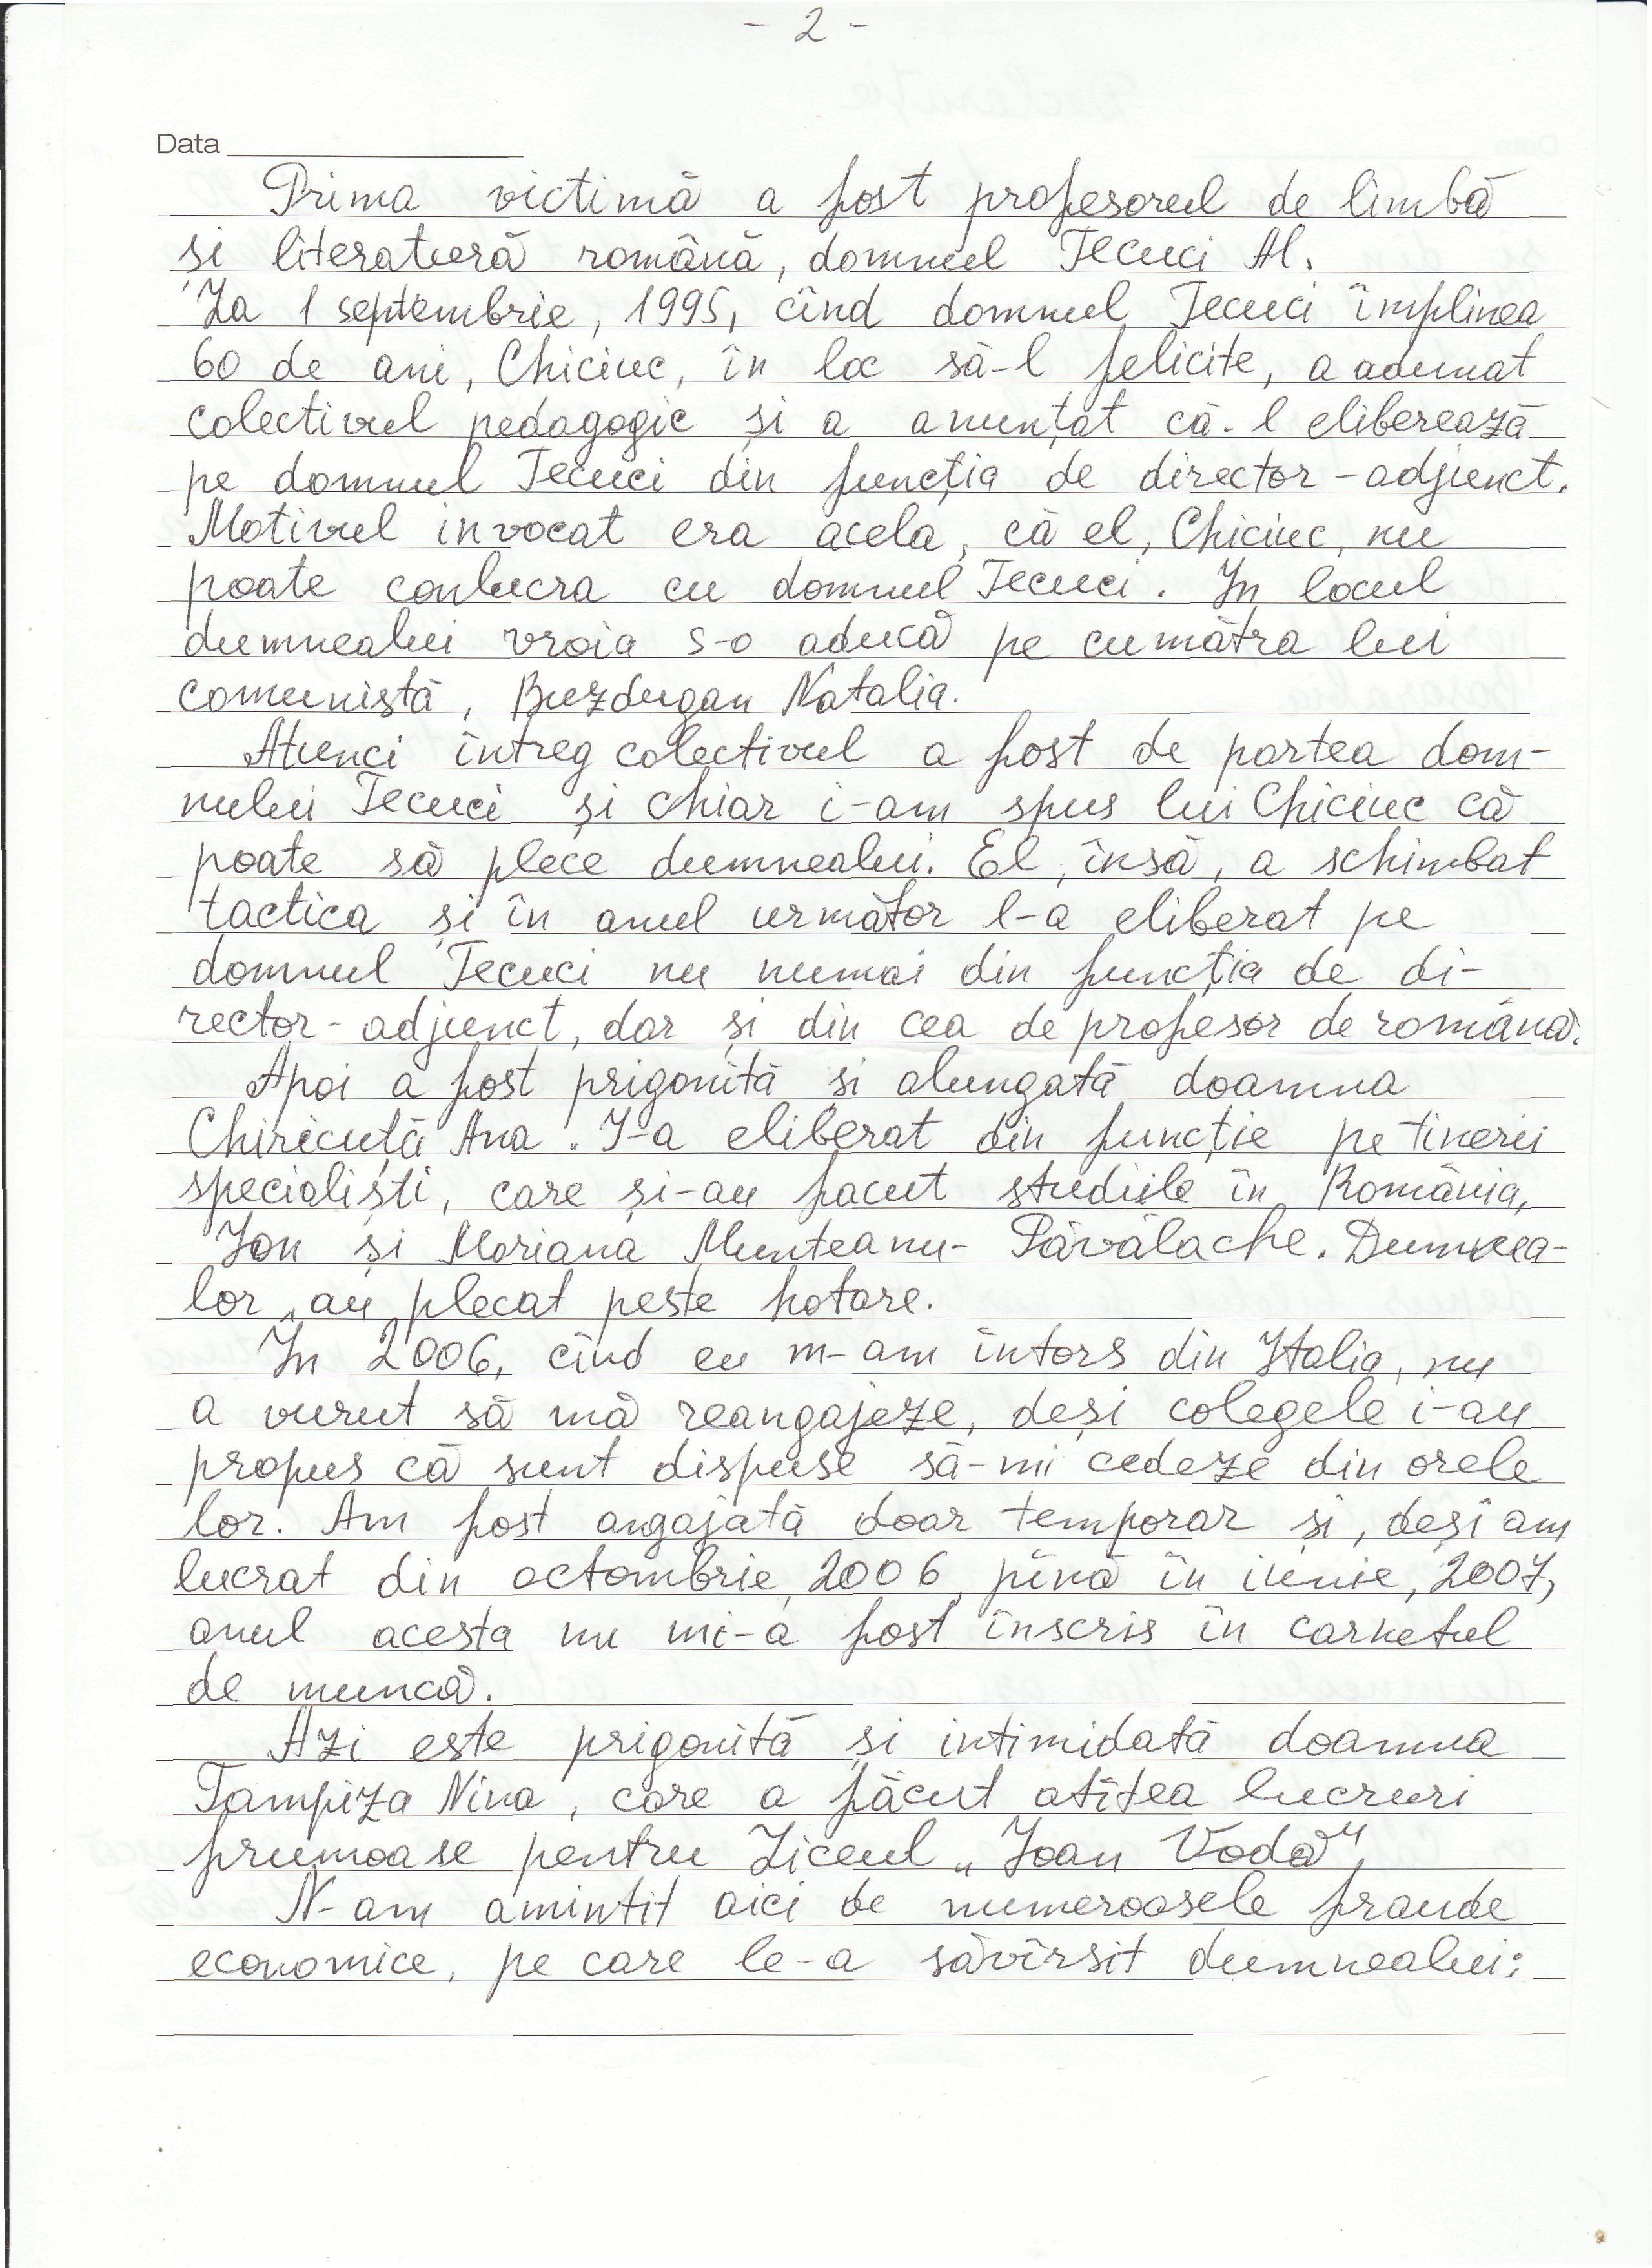 - 2 -
Data
Prima victimă a fost profesorul de limbă
și literatură română, domnul Tecuci Al.
La 1 septembrie, 1995, cînd domnul Tecuci împlinea
60 de ani, Chiciuc, în loc să-l felicite, a adunat
colectivul pedagogic și a anunțat că-l eliberează
pe domnul Tecuci din funcția de director-adjunct.
Motivul invocat era acela, că el, Chiciuc, nu
poate conlucra cu domnul Tecuci. In locul
dumnealui vroia s-o aducă pe cumătra lui
comunistă, Buzdugan Natalia.
Atunci întreg colectivul a fost de partea dom-
nului Tecuci și chiar i-am spus lui Chiciuc că
poate să plece dumnealui. El, însă, a schimbat
tactica și în anul următor l-a eliberat pe
domnul Tecuci nu numai din funcția de di-
rector-adjunct, dar și din cea de profesor de română.
Apoi a fost prigonită și alungată doamna
Chiricuță Ana. I-a eliberat din funcție pe tinerii
specialiști, care și-au facut studiile în România,
Ion și Mariana Munteanu-Păvălache. Dumnea-
lor au plecat peste hotare.
În 2006, cînd eu m-am întors din Italia, nu
a vurut să mă reangajeze, deși colegele i-au
propus că sunt dispuse să-mi cedeze din orele
lor. Am fost angajată doar temporar și, deși am
lucrat din octombrie, 2006, pînă în iunie, 2007,
anul acesta nu mi-a fost înscris în carnetul
de muncă.
Azi este prigonită și intimidată doamna
Tampiza Nina, care a făcut atîtea lucruri
frumoase pentru Liceul „Ioan Vodă”.
N-am amintit aici de numeroasele fraude
economice, pe care le-a săvîrsit dumnealui: